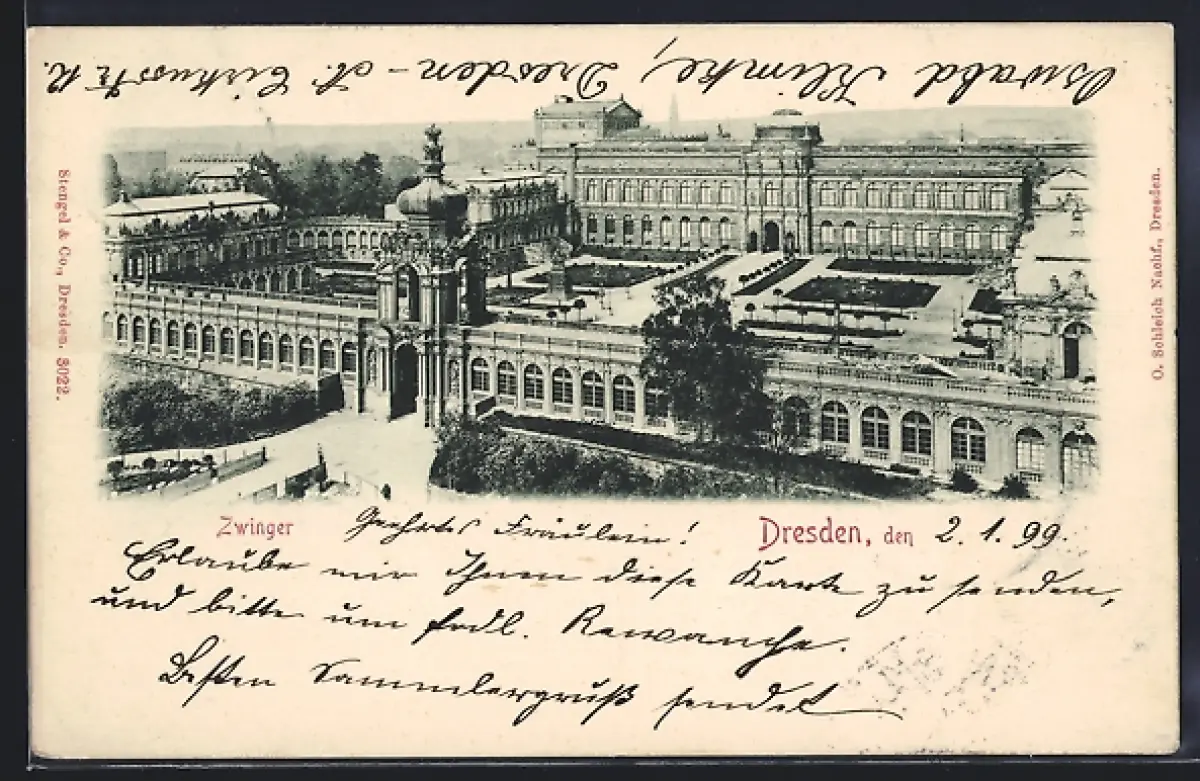 Zwinger
Dresden, den 2. 1. 99.
Geehrtes Fräulein!
Erlaube mir Ihnen diese Karte zu senden,
und bitte um frdl. Rewanche.
Besten Sammlergruß sendet
Oswald Klimke, Dresden-A. Cirkusstr.
Stengel & Co., Dresden. 3022.
O. Schleich Nachf., Dresden.